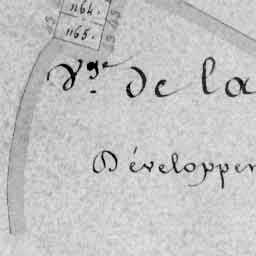 1164.
1165.
Vge de la
Développe